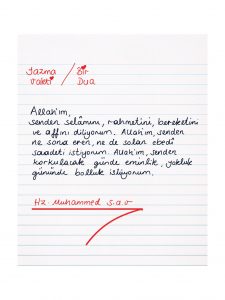 Yazma / Bir
Vakti Dua
Allah'ım,
senden selâmını, rahmetini, bereketini
ve affını diliyorum. Allah'ım, senden
ne sona eren, ne de solan ebedî
saadeti istiyorum. Allah'ım, senden
korkulacak günde eminlik, yokluk
gününde bolluk istiyorum.
Hz Muhammed s.a.v